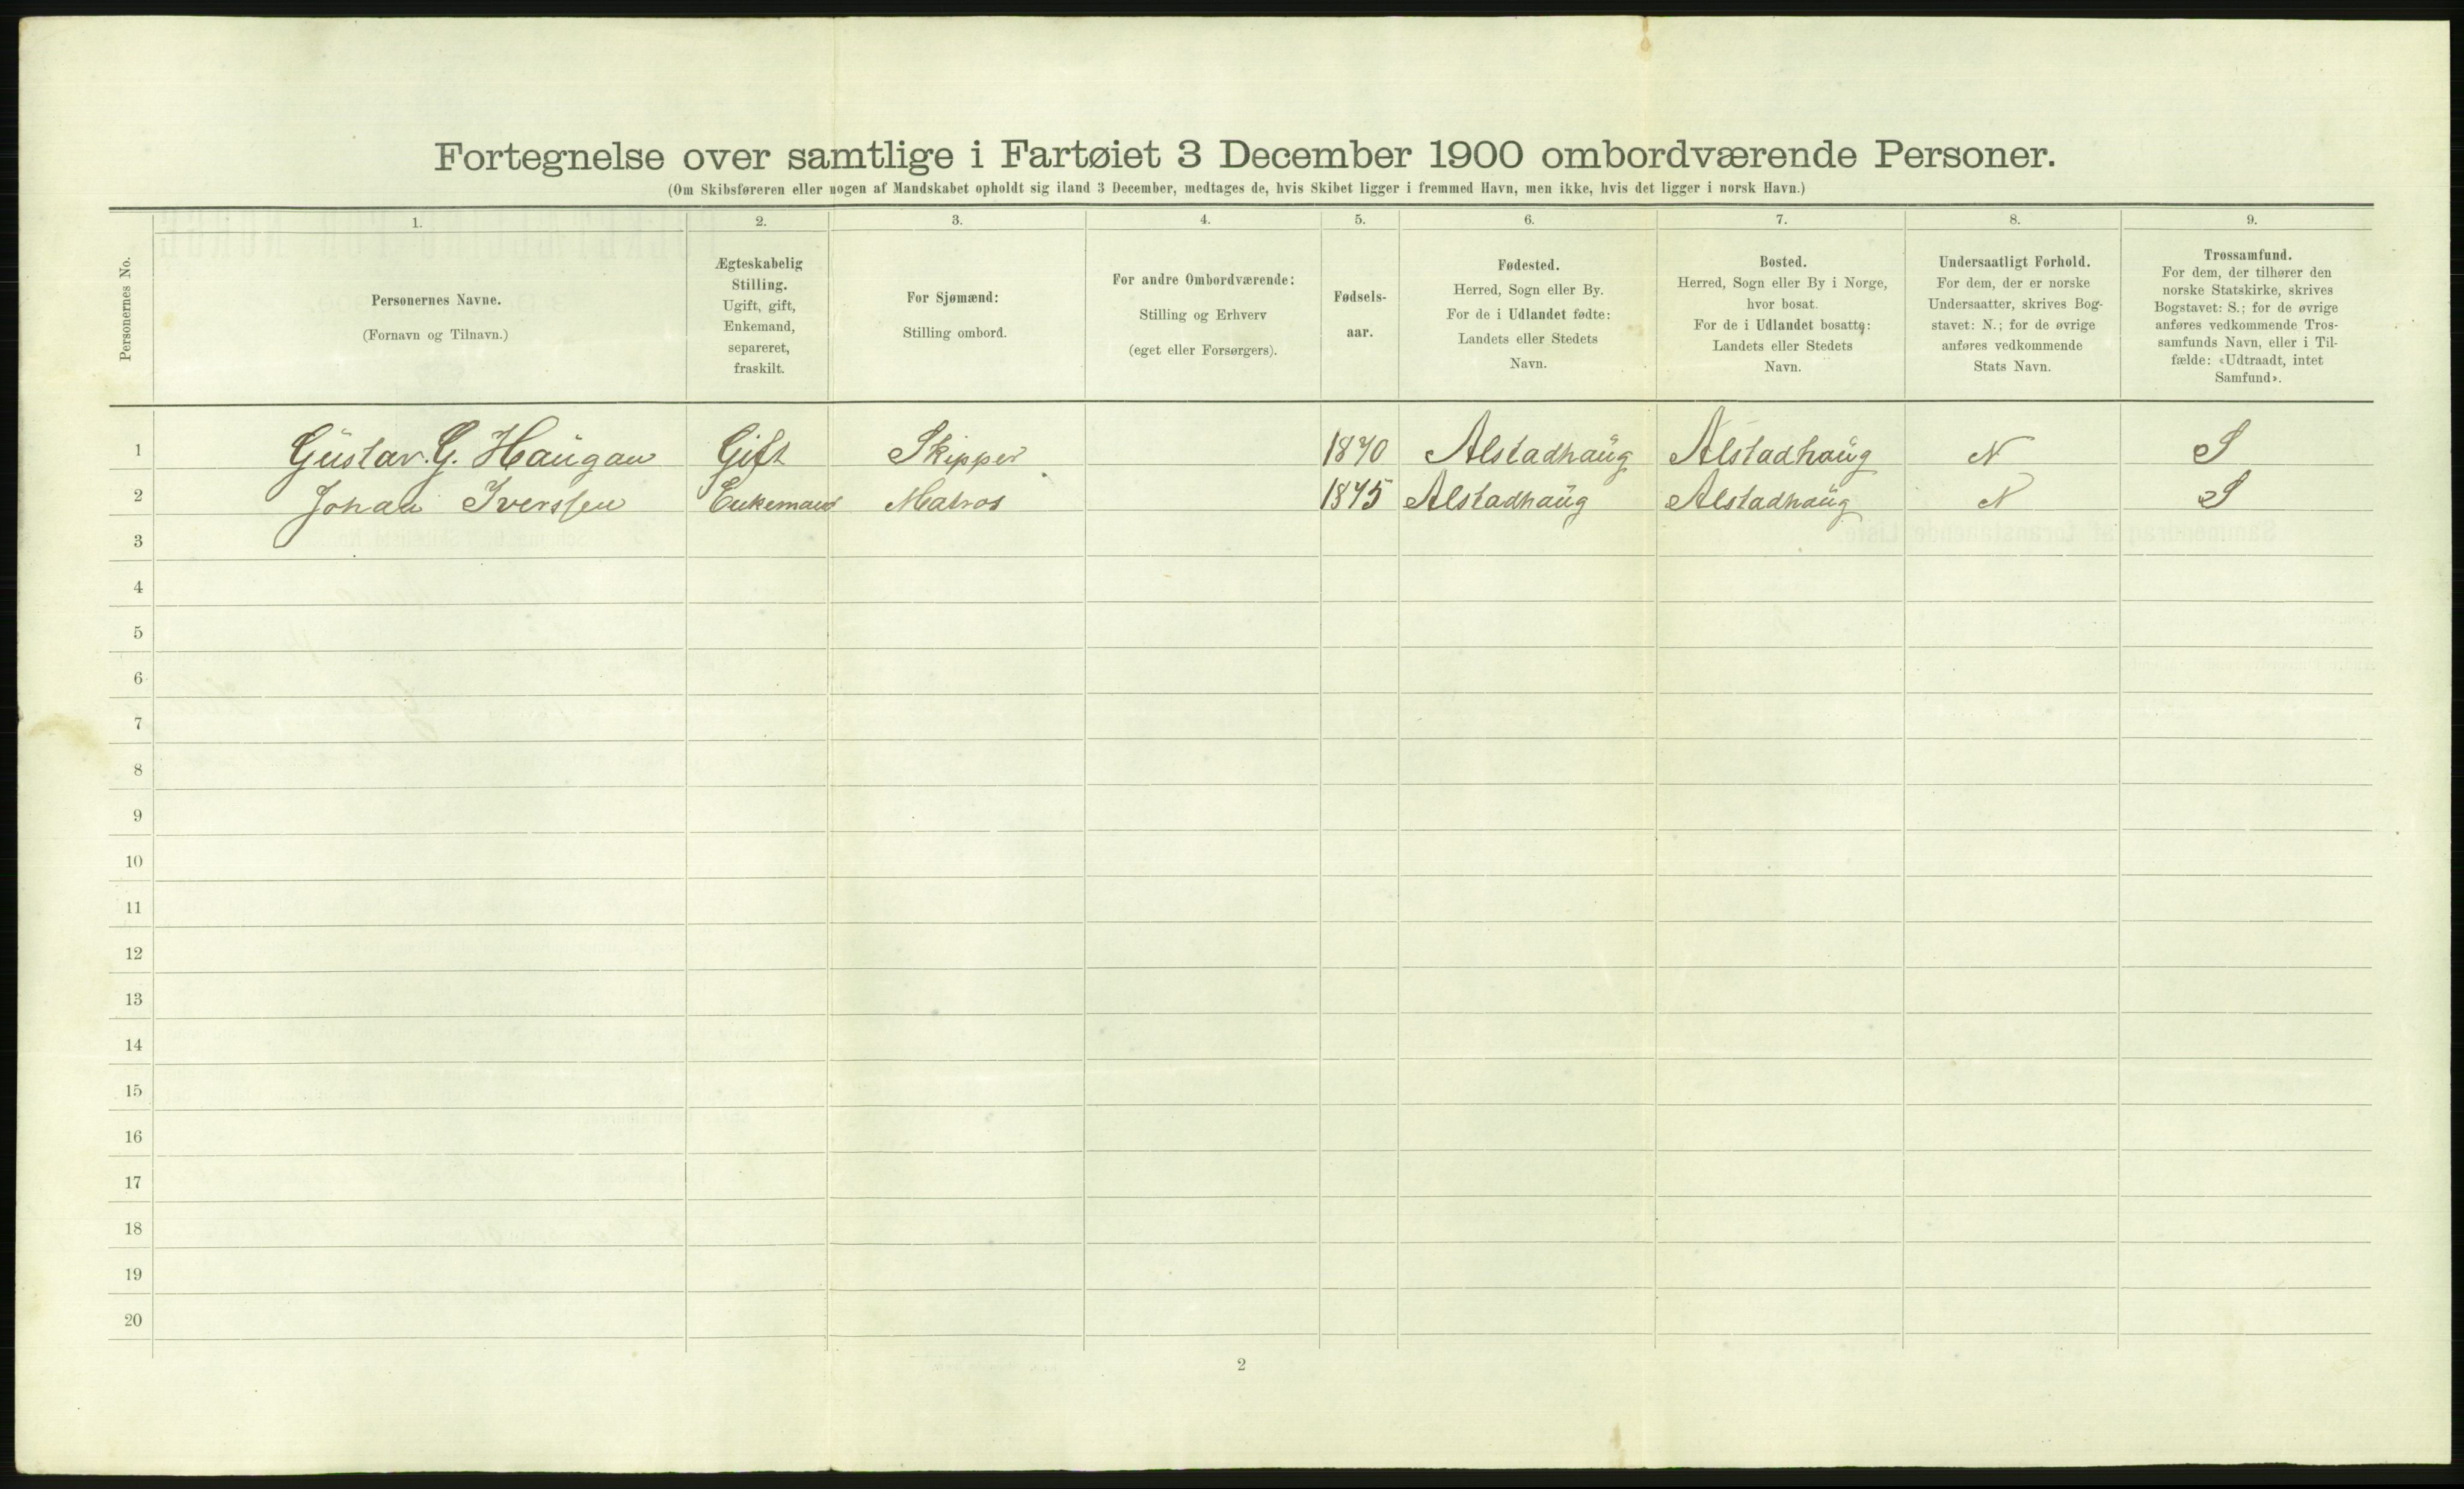 Fortegnelse over samtlige i Fartøiet 3 December 1900 ombordværende Personer.
(Om Skibsføreren eller nogen af Mandskabet opholdt sig iland 3 December, medtages de, hvis Skibet ligger i fremmed Havn, men ikke, hvis det ligger i norsk Havn.)
Personernes No.
1.
Personernes Navne.
(Fornavn og Tilnavn.)
2.
Ægteskabelig
Stilling.
Ugift, gift,
Enkemand,
separeret,
fraskilt.
3.
For Sjømænd:
Stilling ombord.
4.
For andre Ombordværende:
Stilling og Erhverv
(eget eller Forsørgers).
5.
Fødsels-
aar.
6.
Fødested.
Herred, Sogn eller By.
For de i Udlandet fødte:
Landets eller Stedets
Navn.
7.
Bosted.
Herred, Sogn eller By i Norge,
hvor bosat.
For de i Udlandet bosatte:
Landets eller Stedets
Navn.
8.
Undersaatligt Forhold.
For dem, der er norske
Undersaatter, skrives Bog-
stavet: N.; for de øvrige
anføres vedkommende
Stats Navn.
9.
Trossamfund.
For dem, der tilhører den
norske Statskirke, skrives
Bogstavet: S.; for de øvrige
anføres vedkommende Tros-
samfunds Navn, eller i Til-
fælde: «Udtraadt, intet
Samfund».
1 Gustav. G. Haugan Gift Skipper 1870 Alstadhaug Alstadhaug N S
2 Johan Iverssen Enkemand Matros 1875 Alstadhaug Alstadhaug N S
3
4
5
6
7
8
9
10
11
12
13
14
15
16
17
18
19
20
2